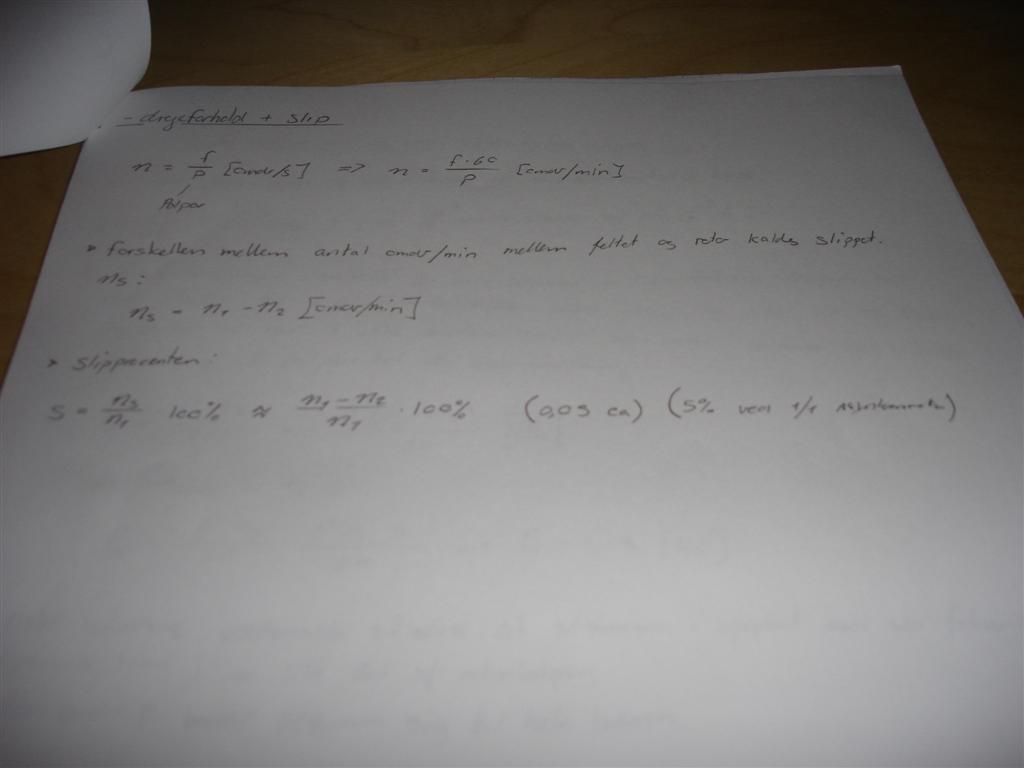 - drejeforhold + slip
n = f/p [omdr/s] => n = f·60/p [omdr/min]
Polpar
* forskellen mellem antal omdr/min mellem feltet og rotor kaldes slippet.
ns:
ns = n1 - n2 [omdr/min]
* slipprocenten:
S = ns/n1 · 100% ≈ n1-n2/n1 · 100% (0,05 ca) (5% ved 1/1